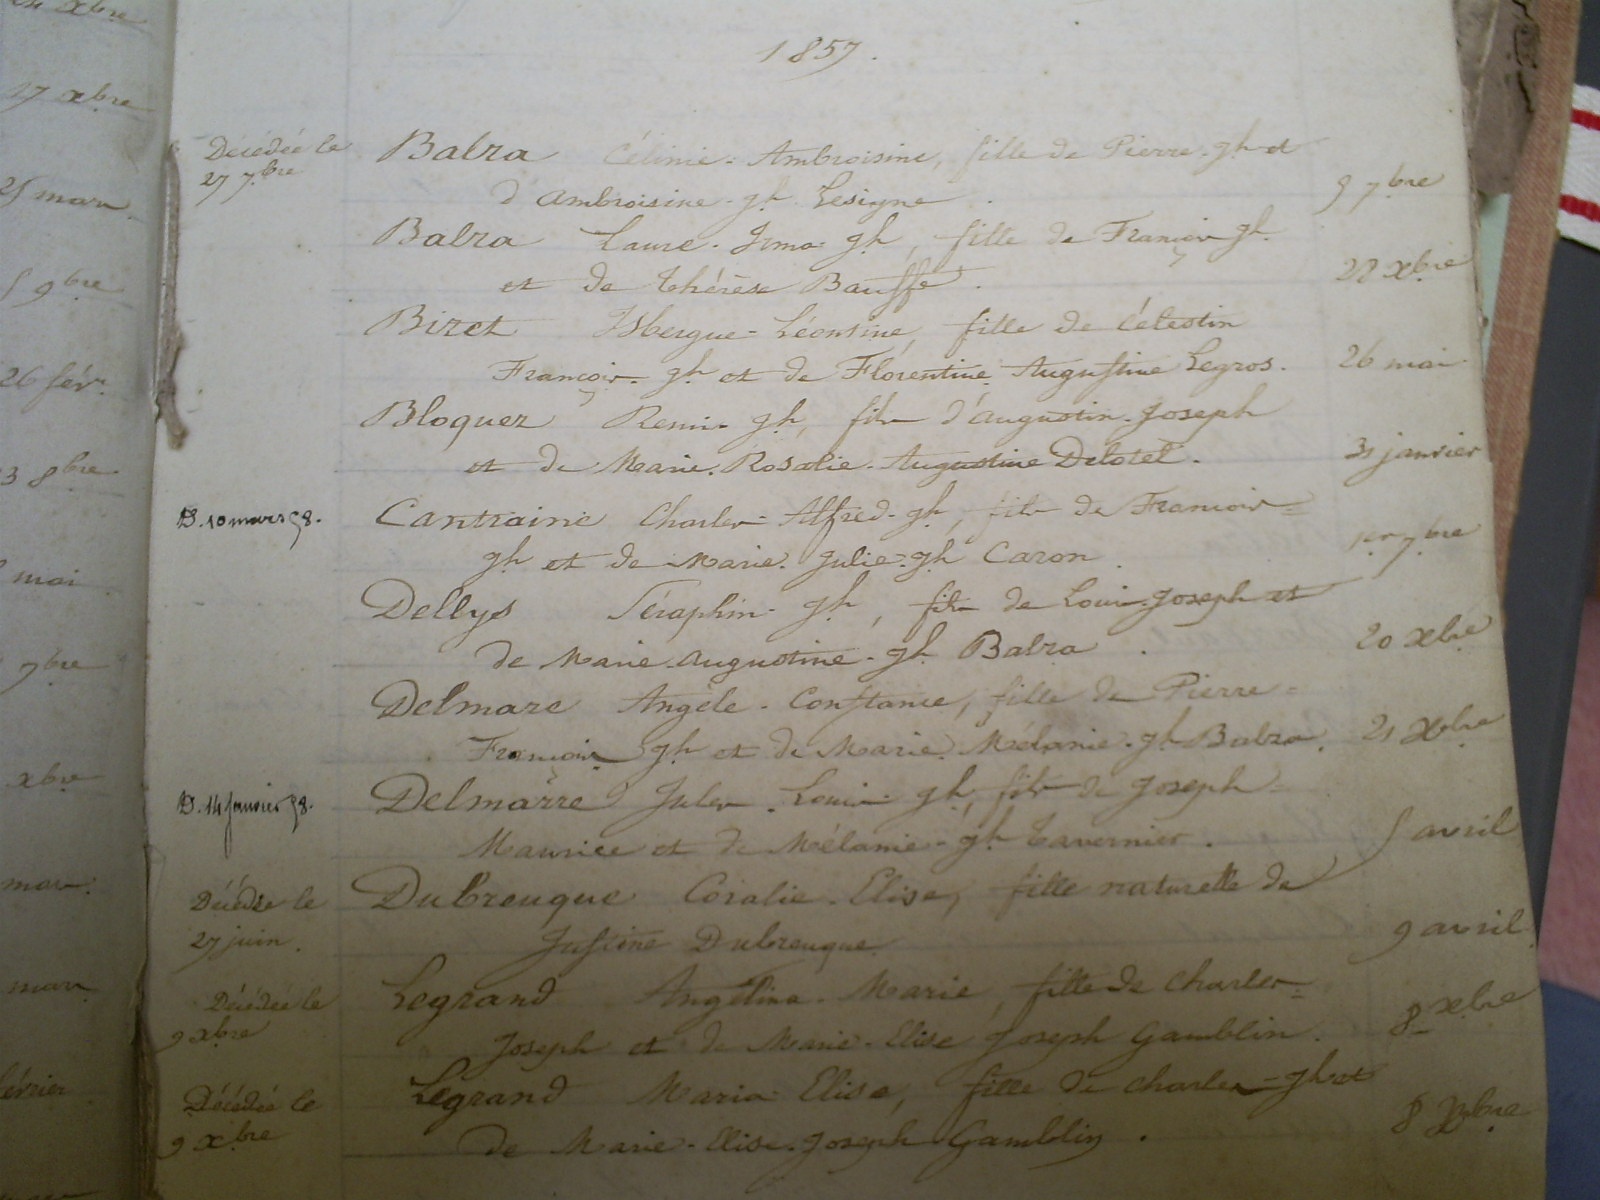 24 xbre
1857.
27 xbre
Décédée le
27 7bre
Balza Célinie-Ambroisine, fille de Pierre-gh et
d'Ambroisine-gh Lesigne.
9 7bre
25 mars
Balza Laure-Irma-gh, fille de François gh
et de Thérèse Bauffe.
22 xbre
5 9bre
Bizet Isbergue-Léontine, fille de Célestin
François-gh et de Florentine Augustine Legros.
26 mai
26 févr.
Bloquez Remi-gh, fils d'Augustin-Joseph
et de Marie-Rosalie-Augustine Delotel.
31 janvier
3 8bre
D. 10 mars 98.
Cantraine Charles-Alfred-gh, fils de François=
gh et de Marie-Julie-gh Caron.
1er 7bre
mai
Dellys Séraphin-gh, fils de Louis-Joseph et
de Marie-Augustine-gh Balza.
20 xbre
7bre
Delmare Angèle-Constance, fille de Pierre=
François gh et de Marie-Mélanie-gh Balza.
21 Xbre
xbre
D. 14 janvier 98.
Delmarre Jules-Louis-gh, fils de Joseph=
Maurice et de Mélanie-gh Tavernier.
5 avril
mars.
Décédée le
27 juin.
Dubreuque Coralie-Elise, fille naturelle de
Justine Dubreuque.
9 avril.
mars
Décédée le
9 xbre
Legrand Angélina-Marie, fille de Charles=
Joseph et de Marie-Elise Joseph Gamblin.
8 xbre
février
Décédée le
9 xbre
Legrand Maria-Elise, fille de Charles-gh et
de Marie-Elise-Joseph Gamblin.
8 Xbre